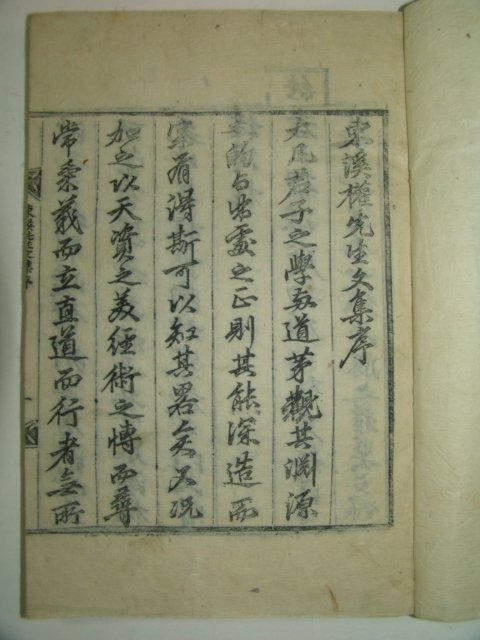 東溪權先生文集序
大凡君子之學與道茅觀其淵源
之的與出處之正則其能深造而
實有得斯可以知其畧矣又況
加之以天資之美經術之博而尋
常秉義而立直道而行者無所